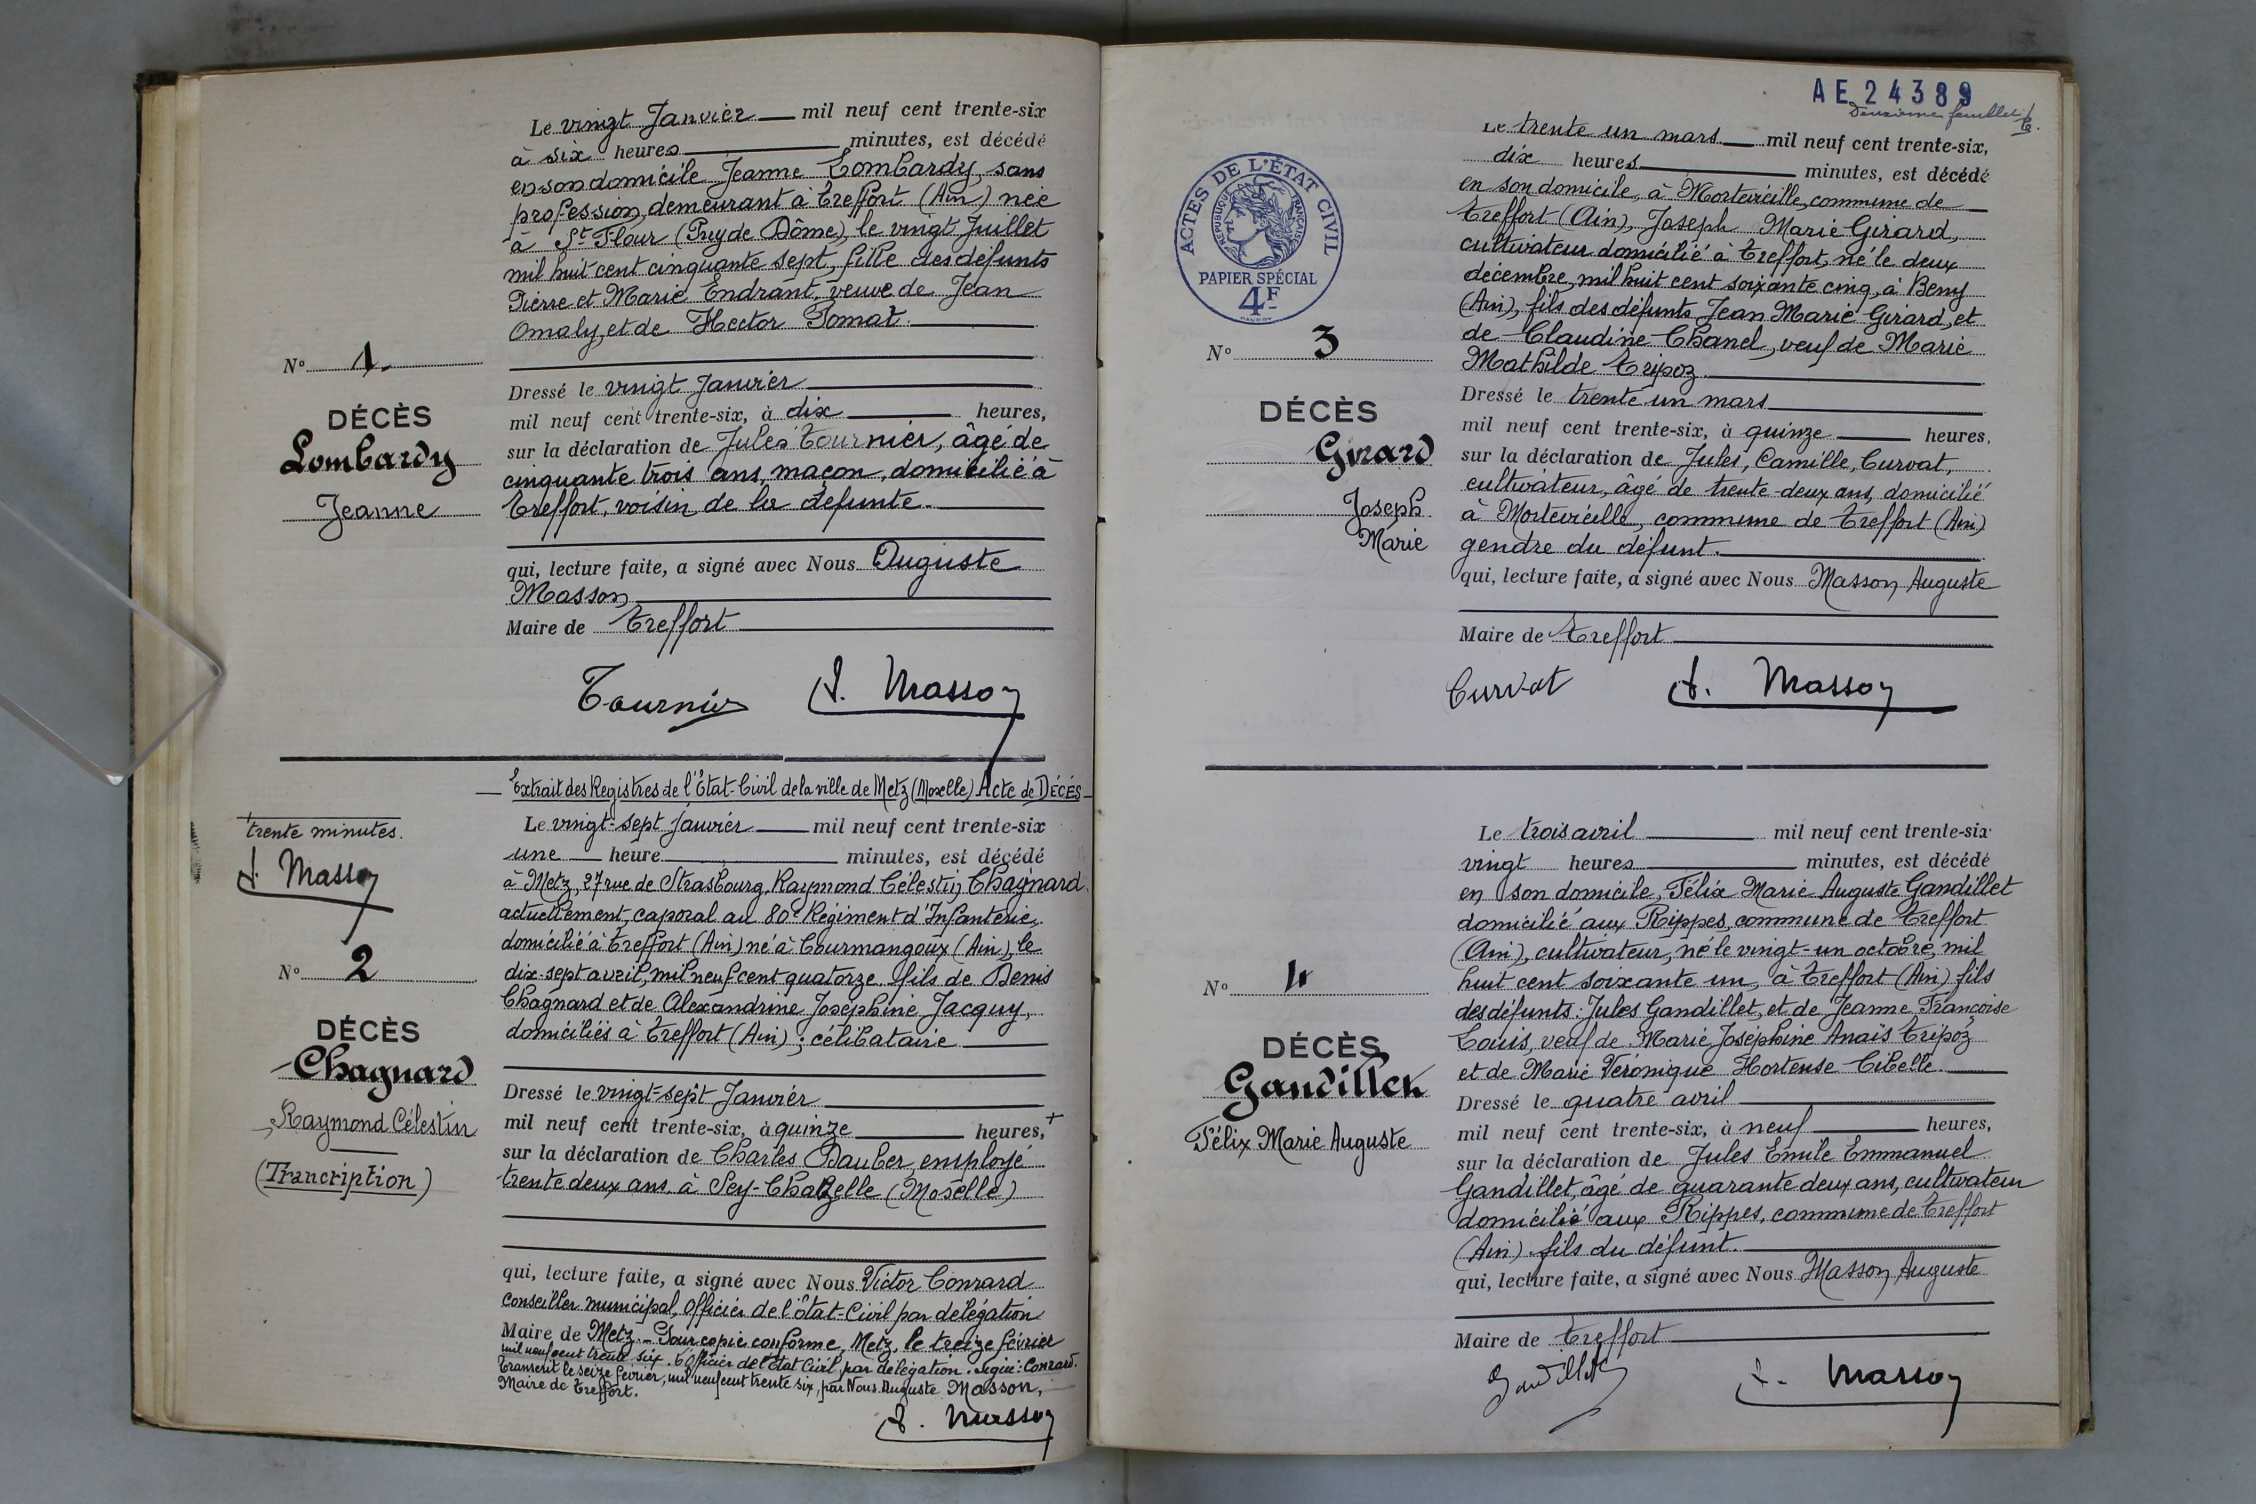 Le vingt Janvier mil neuf cent trente-six
à six heures minutes, est décédé
en son domicile Jeanne Lombardy, sans
profession, demeurant à Treffort (Ain) née
à St Flour (Puy de Dôme), le vingt Juillet
mil huit cent cinquante sept, fille des défunts
Pierre et Marie Endrant, veuve de Jean
Omaly, et de Hector Tomat.
No 1.
DÉCÈS
Lombardy
Jeanne
Dressé le vingt Janvier
mil neuf cent trente-six, à dix heures,
sur la déclaration de Jules Tournier, âgé de
cinquante trois ans, maçon, domicilié à
Treffort, voisin de la défunte.
qui, lecture faite, a signé avec Nous Auguste
Masson
Maire de Treffort
Tournier A. Masson
Extrait des Registres de l'Etat-Civil de la ville de Metz (Moselle) Acte de DÉCÉS
trente minutes.
A. Masson
No 2
DÉCÈS
Chagnard
Raymond Célestin
(Trancription)
Le vingt-sept janvier mil neuf cent trente-six
une heure minutes, est décédé
à Metz, 27 rue de Strasbourg, Raymond Célestin Chagnard
actuellement, caporal au 80e Régiment d'Infanterie,
domicilié à Treffort (Ain) né à Courmangoux (Ain), le
dix-sept avril, mil neuf cent quatorze fils de Denis
Chagnard et de Alexandrine Joséphine Jacquy,
domiciliés à Treffort (Ain) ; célibataire
Dressé le vingt-sept Janvier
mil neuf cent trente-six, à quinze heures, +
sur la déclaration de Charles Dauber, employé
trente deux ans, à Sey-Chazelle (Moselle)
qui, lecture faite, a signé avec Nous Victor Conrard
conseiller municipal, Officier de l'état-Civil par délégation
Maire de Metz. - Pour copie conforme, Metz, le treize février
mil neuf cent trente six. L'Officier de l'Etat Civil, par délégation. signé : Conrard.
Transcrit le seize février, mil neuf cent trente six, par Nous Auguste Masson,
Maire de Treffort.
A. Masson
AE 24389
Deuxième feuillet
ACTES DE L'ÉTAT CIVIL
RÉPUBLIQUE FRANÇAISE
PAPIER SPÉCIAL
4F
No 3
DÉCÈS
Girard
Joseph
Marie
Le trente un mars mil neuf cent trente-six,
dix heures minutes, est décédé
en son domicile, à Mortevieille, commune de
Treffort (Ain), Joseph Marie Girard,
cultivateur domicilié à Treffort, né le deux
décembre, mil huit cent soixante cinq, à Beny
(Ain), fils des défunts Jean Marie Girard, et
de Claudine Chanel, veuf de Marie
Mathilde Tripoz
Dressé le trente un mars
mil neuf cent trente-six, à quinze heures,
sur la déclaration de Jules, Camille, Curvat,
cultivateur, âgé de trente-deux ans, domicilié
à Mortevieille, commune de Treffort (Ain)
gendre du défunt.
qui, lecture faite, a signé avec Nous Masson Auguste
Maire de Treffort
Curvat A. Masson
No 4
DÉCÈS
Gandillet
Félix Marie Auguste
Le trois avril mil neuf cent trente-six
vingt heures minutes, est décédé
en son domicile, Félix Marie Auguste Gandillet
domicilié aux Rippes, commune de Treffort
(Ain), cultivateur, né le vingt-un octobre, mil
huit cent soixante un, à Treffort (Ain) fils
des défunts : Jules Gandillet, et de Jeanne Françoise
Louis, veuf de Marie Joséphine Anaïs Tripoz
et de Marie Véronique Hortense Cibelle.
Dressé le quatre avril
mil neuf cent trente-six, à neuf heures,
sur la déclaration de Jules Emile Emmanuel
Gandillet, âgé de quarante deux ans, cultivateur
domicilié aux Rippes, commune de Treffort
(Ain). fils du défunt.
qui, lecture faite, a signé avec Nous Masson Auguste
Maire de Treffort
Gandillet A. Masson